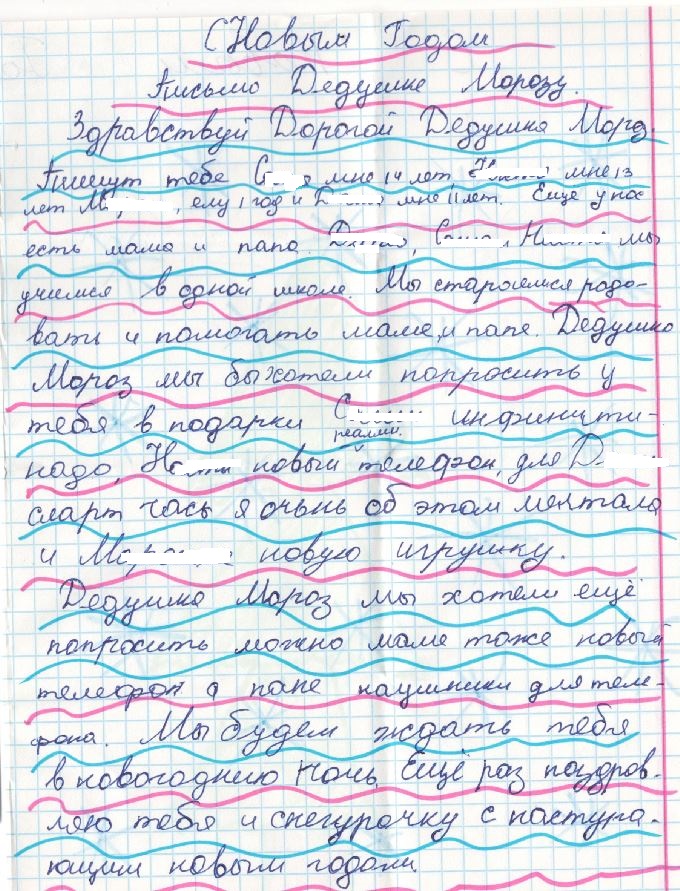 С Новым Годом
Письмо Дедушке Морозу.
Здравствуй Дорогой Дедушка Мороз.
Пишут тебе С я мне 14 лет, мне 13
лет М, ему 1 год и Д мне 11 лет. Ещё у нас
есть мама и папа. Д, С, Н мы
учимся в одной школе. Мы стараемся радо-
вать и помогать маме и папе. Дедушка
Мороз мы бы хотели попросить у
тебя в подарки С
реалми.
надо, Н новый телефон, для Д
смарт часы я очень об этом мечтала
и М новую игрушку.
Дедушка Мороз мы хотели ещё
попросить можно маме тоже новый
телефон а папе наушники для теле-
фона. Мы будем ждать тебя
в новогоднию ночь. Ещё раз поздров-
ляю тебя и снегурочку с наступа-
ющим новым годом.